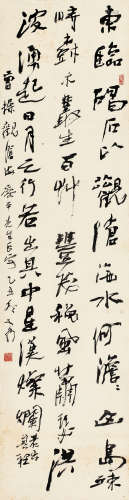 東臨碣石以觀滄海水何澹澹山島竦
峙樹木叢生百艸豐茂秋風蕭瑟洪
波湧起日月之行若出其中星漢燦爛若出其裡
曹操觀滄海